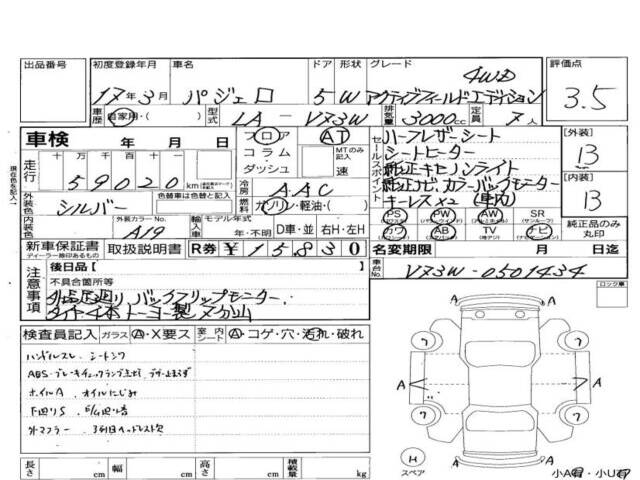 出品番号 初度登録年月 車名 ドア 形状 グレード 評価点
17年3月 パジェロ 5 W アクティブフィールドエディション 4WD 3.5
車歴 自家用・( ) 型式 LA-V73W 排気量 3000cc 定員 7人
車検 年 月 日
フロア AT
コラム MTのみ記入
ダッシュ 速
セールスポイント
ハーフレザーシート
シートヒーター
純正キセノンライト
純正ナビ、カラーバックモニター
キーレス×2 (車内)
[外装] 13
[内装] 13
走行 十万 万 千 百 十 一
59020 km
冷房 AAC
燃料 ガソリン・軽油・( )
外装色 シルバー 色替車は色替と記入
内装色 外装カラーNo. A19
輸入車 モデル年式 年・不明 D車・並 右H・左H
PS PW AW SR
カワ AB TV ナビ
純正品のみ丸印
新車保証書 取扱説明書 R券 ¥15,830
ディーラー様印あるもの
名変期限 月 日迄
車台No. V73W-0501434
注意事項
後日品【 】
不具合箇所等
バックフリップモニター
タイヤ4本トーヨー製
ロック車
検査員記入 ガラス A・X要ス 室内シート A・コゲ・穴・汚れ・破れ
ハンドルスレ シートシワ
ABS・ブレーキチェックランプ点灯
ホイルA オイルにじみ
下廻りS
外マフラー 3列目ヘッドレスト欠
A A A A
ワ ワ ワ ワ
H
スペア
小A有・小U有
長さ cm 幅 cm 高さ cm 積載量 kg
現在色を記入